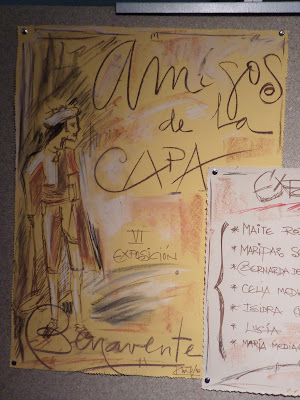 Amigos
de la
CAPA
VI
EXPOSICIÓN
Benavente
* MAITE
* MARIPAZ
* BERNARDA
* CELIA
* ISIDRA
* LUCÍA
* MARÍA